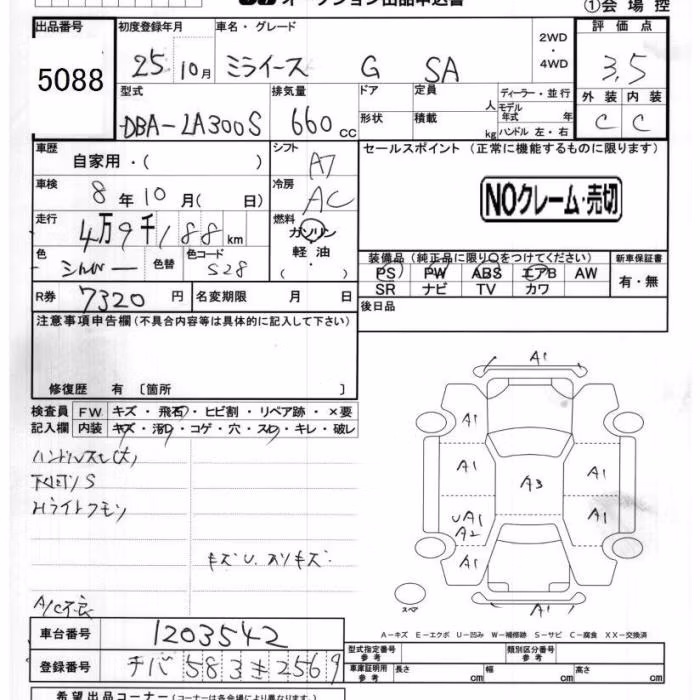 オークション出品申込書
①会場控
出品番号
5088
初度登録年月
25 10月
車名・グレード
ミライース G SA
2WD
・
4WD
評価点
3.5
外装 内装
C C
型式
DBA-LA300S
排気量
660 cc
ドア
形状
定員 人
積載 kg
ディーラー・並行
モデル年式 年
ハンドル 左・右
車歴
自家用・( )
シフト
AT
車検
8年10月( 日)
冷房
AC
走行
4万9千188km
燃料
ガソリン
・
軽油
色
シルバー
色替
色コード
S28
R券 7320円
名変期限 月 日
セールスポイント (正常に機能するものに限ります)
NOクレーム・売切
装備品 (純正品に限り○をつけてください)
PS PW ABS エアB AW
SR ナビ TV カワ
新車保証書
有・無
後日品
注意事項申告欄 (不具合内容等は具体的に記入して下さい)
修復歴 有 〔箇所 〕
検査員
記入欄
FW キズ・飛石・ヒビ割・リペア跡・×要
内装 キズ・汚・コゲ・穴・スレ・キレ・破レ
ハンドルスレ(大)
下回りS
Hライトクモリ
キズU、スリキズ
A/C不良
A1
A1
A1
A1
A3
A1
UA1
A2
A1
A1
A1
A1
スペア
A-キズ E-エクボ U-凹み W-補修跡 S-サビ C-腐食 XX-交換済
車台番号 1203542
登録番号 チバ 583 2569
型式指定番号
参考
類別区分番号
参考
車庫証明用
参考
長さ cm 幅 cm 高さ cm
希望出品コーナー (コーナーは各会場により異なります。)